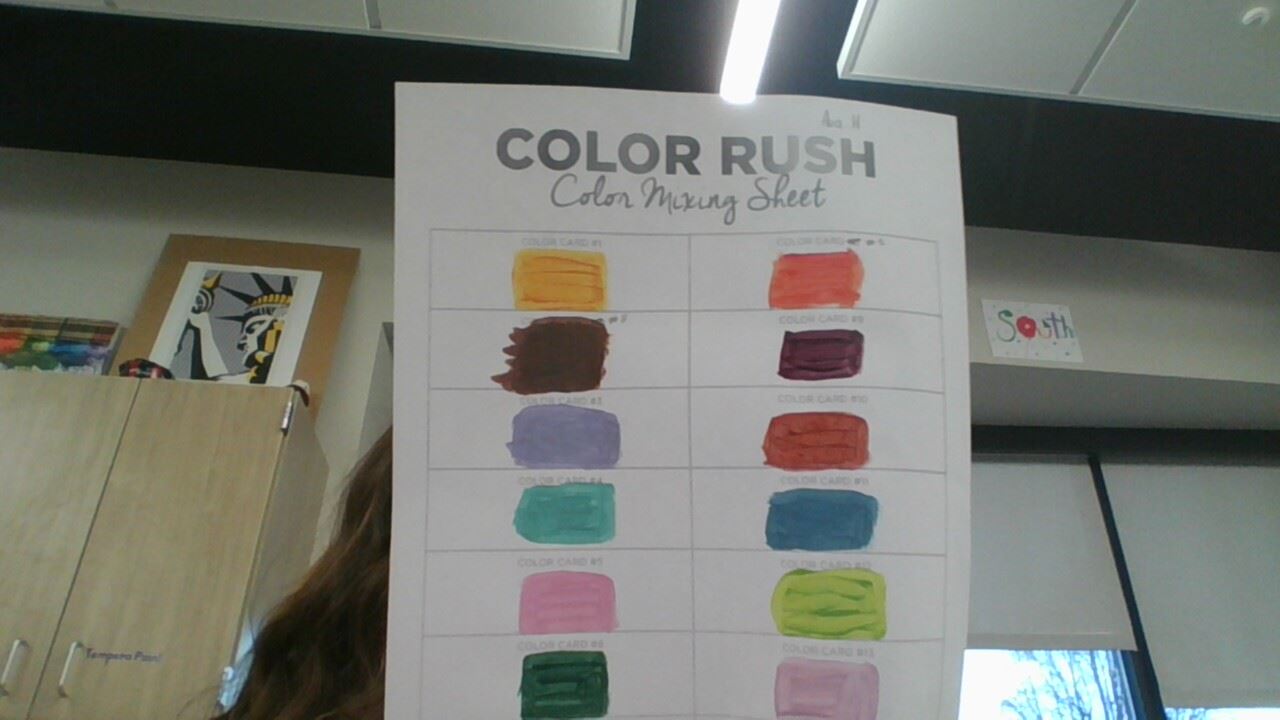 COLOR RUSH
Color Mixing Sheet
COLOR CARD #1
COLOR CARD
COLOR CARD #9
COLOR CARD #3
COLOR CARD #10
COLOR CARD #4
COLOR CARD #11
COLOR CARD #5
COLOR CARD #12
COLOR CARD #6
COLOR CARD #13
South
Tempera Paint